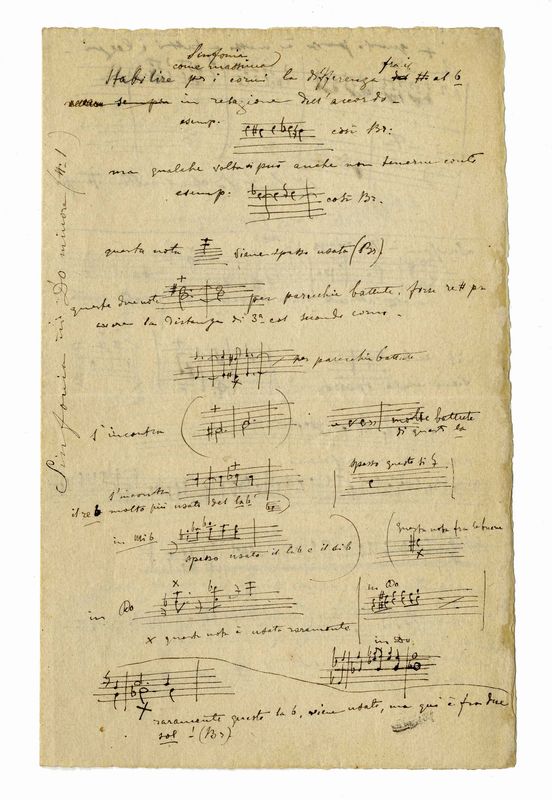 Sinfonia
come massima
Stabilire per i corni la differenza fra il # al b
sempre in relazione dell'accordo -
esemp. così Br:
ma qualche volta si può anche non tenerne conto
esemp. così Br.
questa nota viene spesso usata (Br)
queste due note per parecchie battute, forse re# per
la distanza di 3a col secondo corno -
per parecchie battute
s'incontra molte battute
di questi la
s'incontra spesso questo si
il re b molto più usato del lab
in Mib questa nota fra le buone
spesso usato il lab e il
in Do in Do
x questa nota è usata raramente
in Do
raramente questo la b, viene usato, ma qui è fra due
sol! (Br)
Sinfonia in Do minore (N. 1)